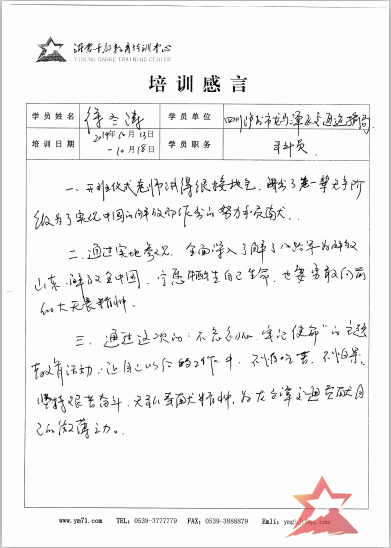 沂蒙干部教育培训中心
YIMENG GADRE TRAINING CENTER
培训感言
学员姓名 徐冬涛 学员单位 四川泸州市龙马潭区交通运输局
培训日期 2019年10月13日 - 10月18日 学员职务 科员
一、开班仪式老师讲得很接地气，讲出了第一辈无产阶
级为了实现中国的解放而作出的努力和贡献。
二、通过实地参观，全面深入了解了八路军为解放
山东、解放全中国，宁愿牺牲自己生命，也要勇敢向前
的大无畏精神。
三、通过这次的"不忘初心、牢记使命"的主题
教育活动，让自己以后的工作中，不怕吃苦、不怕累，
坚持艰苦奋斗、无私奉献精神，为龙马潭交通贡献自
己的微薄之力。
www.ym71.com TEL：0539-3777779 FAX：0539-3888879 Emli：